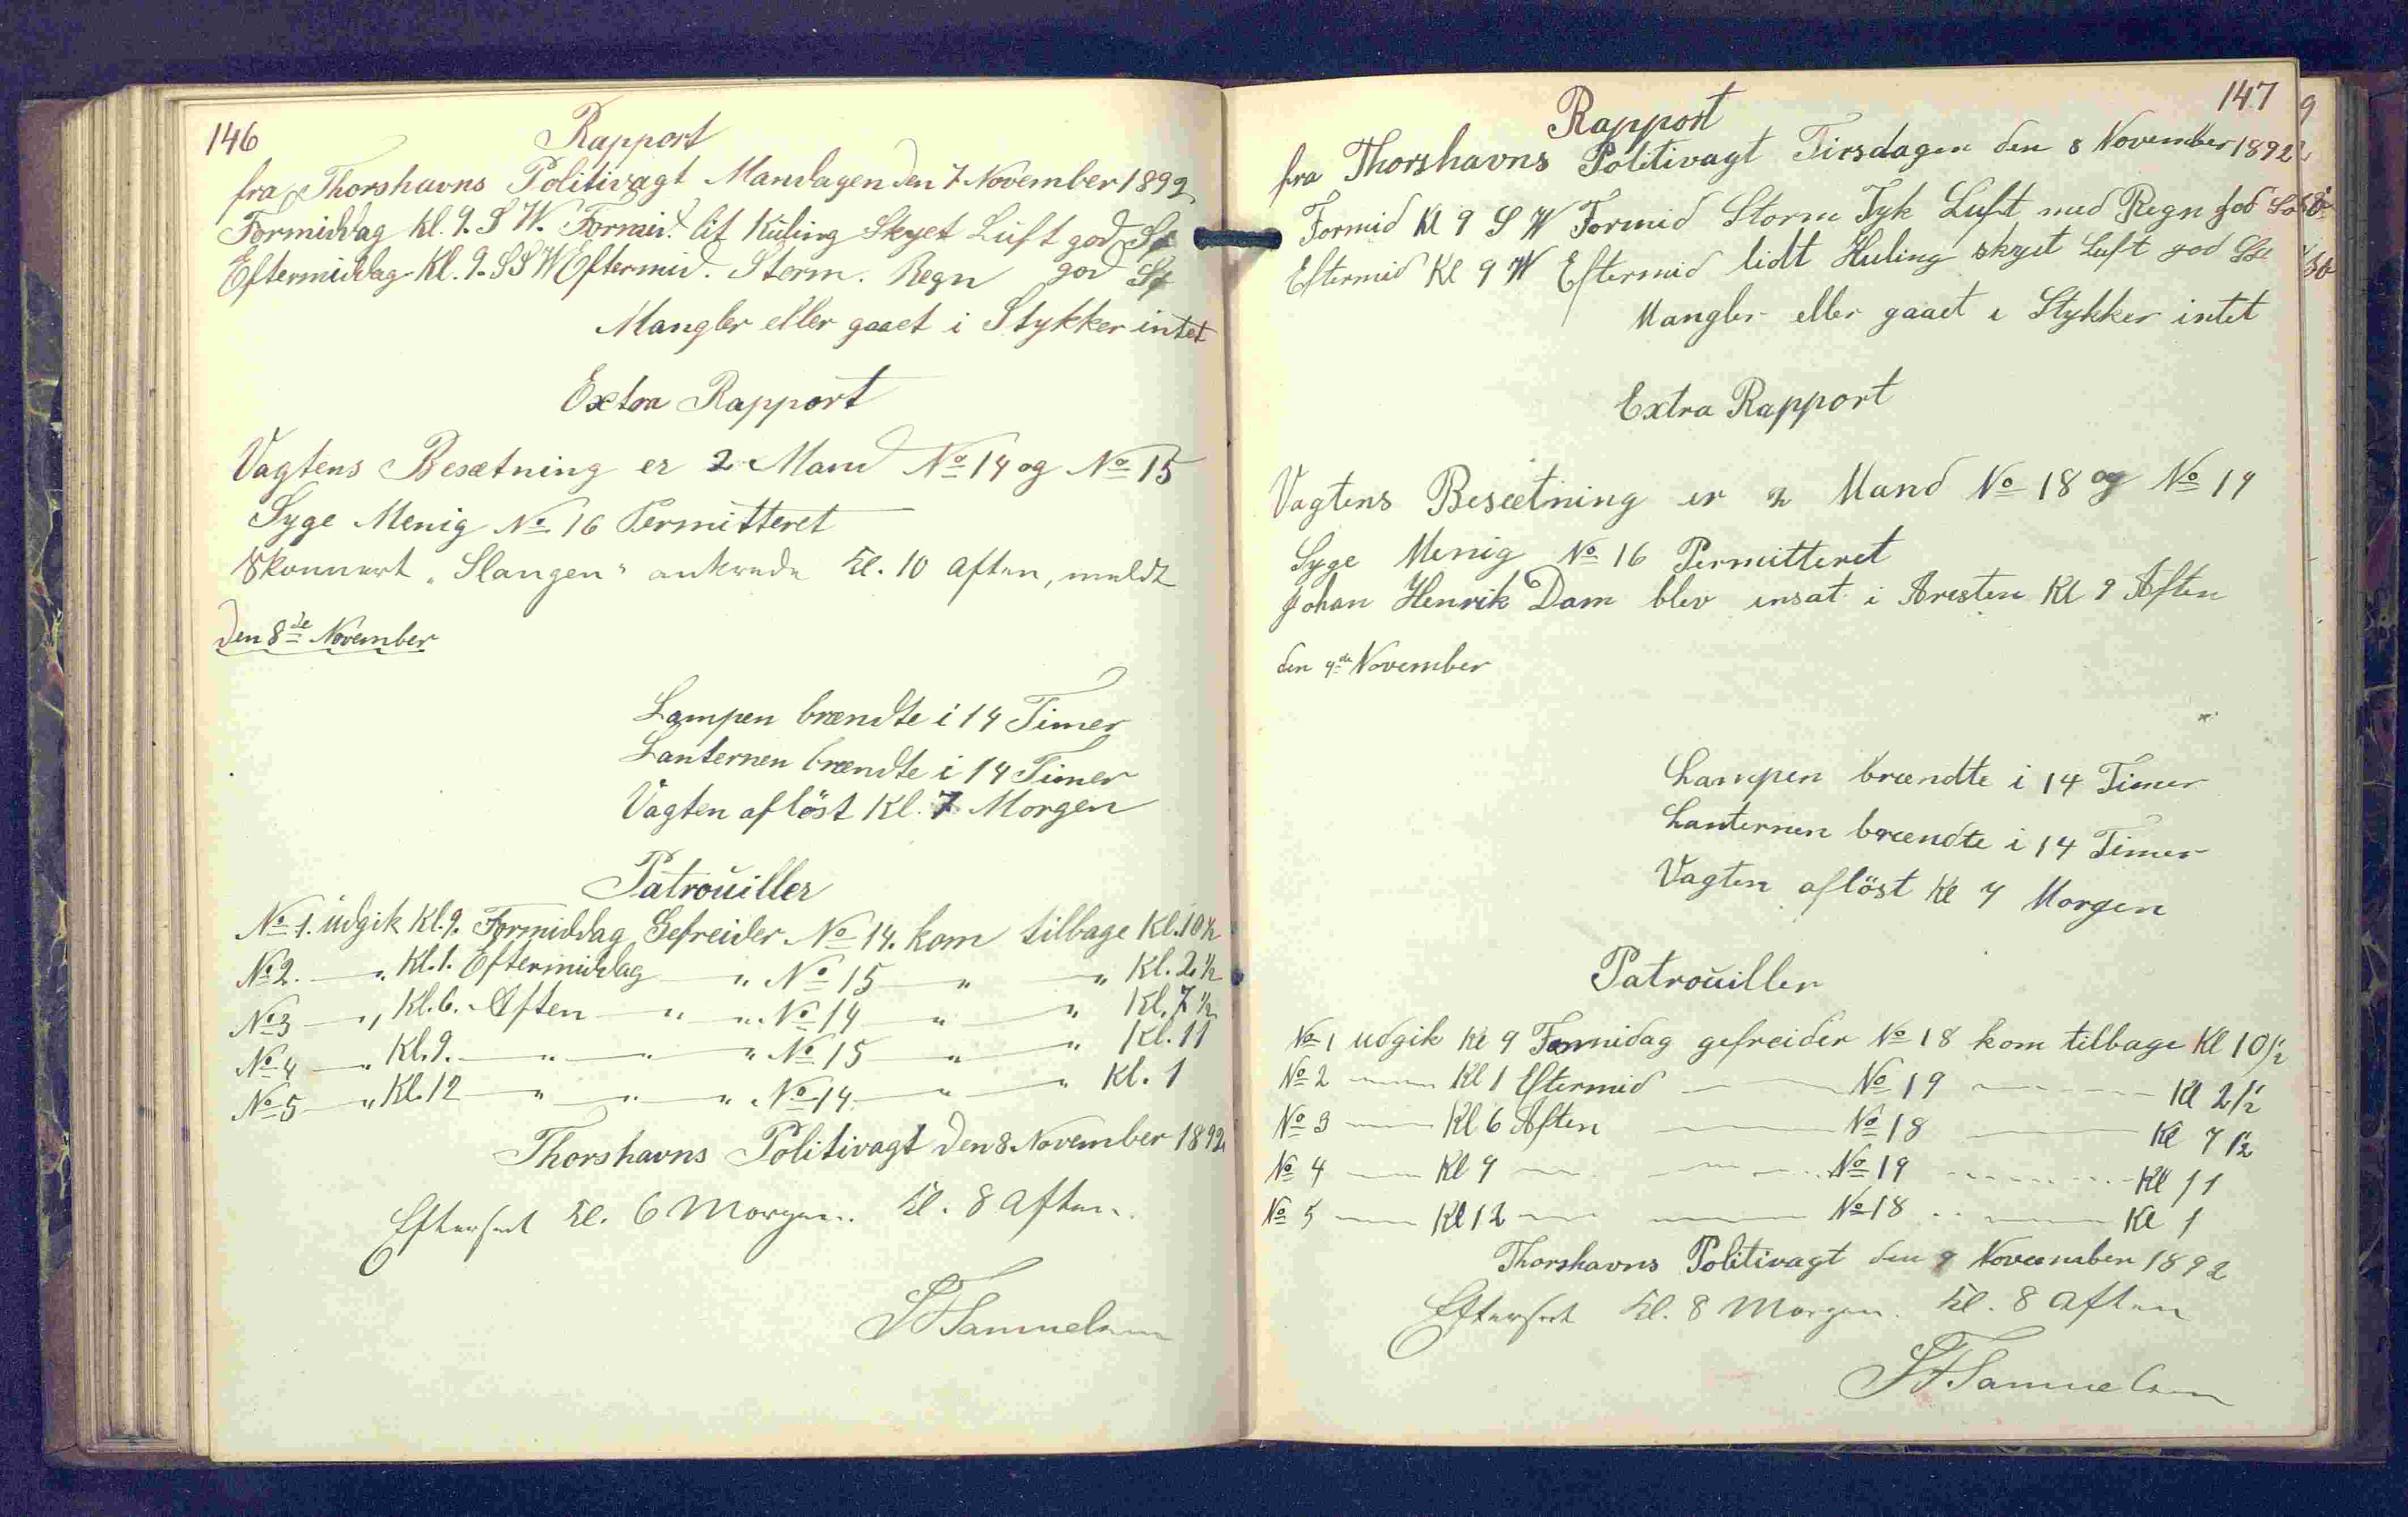 146
Rapport
fra Thorshavns Politivagt Mandagen den 7 November 1892
Formiddag Kl. 9. S W. Formid. lit Kuling Skyet Luft god
Eftermiddag Kl. 9. S S W Eftermid. Storm. Regn god
Mangler eller gaaet i Stykker intet
Extra Rapport
Vagtens Besætning er 2 Mand No 14 og No 15
Syge Menig No 16 Permitteret
Skonnert "Slangen" ankrede Kl. 10 Aften, meldt
den 8de November
Lampen brændte i 14 Timer
Lanternen brændte i 14 Timer
Vagten aflöst Kl. 7 Morgen
Patrouiller
No 1. udgik Kl. 9. Formiddag Gefreider No 14. kom tilbage Kl. 10½
No 2. — " Kl. 1. Eftermiddag — " No 15 — " — " Kl. 2½
No 3 — " Kl. 6. Aften — " — " No 14 — " — " Kl. 7½
No 4 — " Kl. 9. — " — " — " No 15 — " — " Kl. 11
No 5 — " Kl. 12 — " — " — " No 14 — " — " Kl. 1
Thorshavns Politivagt den 8 November 1892
Efterset Kl. 6 Morgen. Kl. 8 Aften.
Samuelsen
147
Rapport
fra Thorshavns Politivagt Tirsdagen den 8 November 1892
Formid Kl 9 S W Formid Storm Tyk Luft med Regn god
Eftermid Kl 9 W Eftermid lidt Kuling skyet Luft god
Mangler eller gaaet i Stykker intet
Extra Rapport
Vagtens Besætning er 2 Mand No 18 og No 19
Syge Menig No 16 Permitteret
Johan Henrik Dam blev insat i Aresten Kl 9 Aften
den 9de November
Lampen brændte i 14 Timer
Lanternen brændte i 14 Timer
Vagten aflöst Kl 7 Morgen
Patrouiller
No 1 udgik Kl 9 Formidag gefreider No 18 kom tilbage Kl 10½
No 2 — Kl 1 Eftermid — No 19 — Kl 2½
No 3 — Kl 6 Aften — No 18 — Kl 7½
No 4 — Kl 9 — No 19 — Kl 11
No 5 — Kl 12 — No 18 — Kl 1
Thorshavns Politivagt den 9 November 1892
Efterset Kl. 8 Morgen. Kl. 8 Aften
Samuelsen